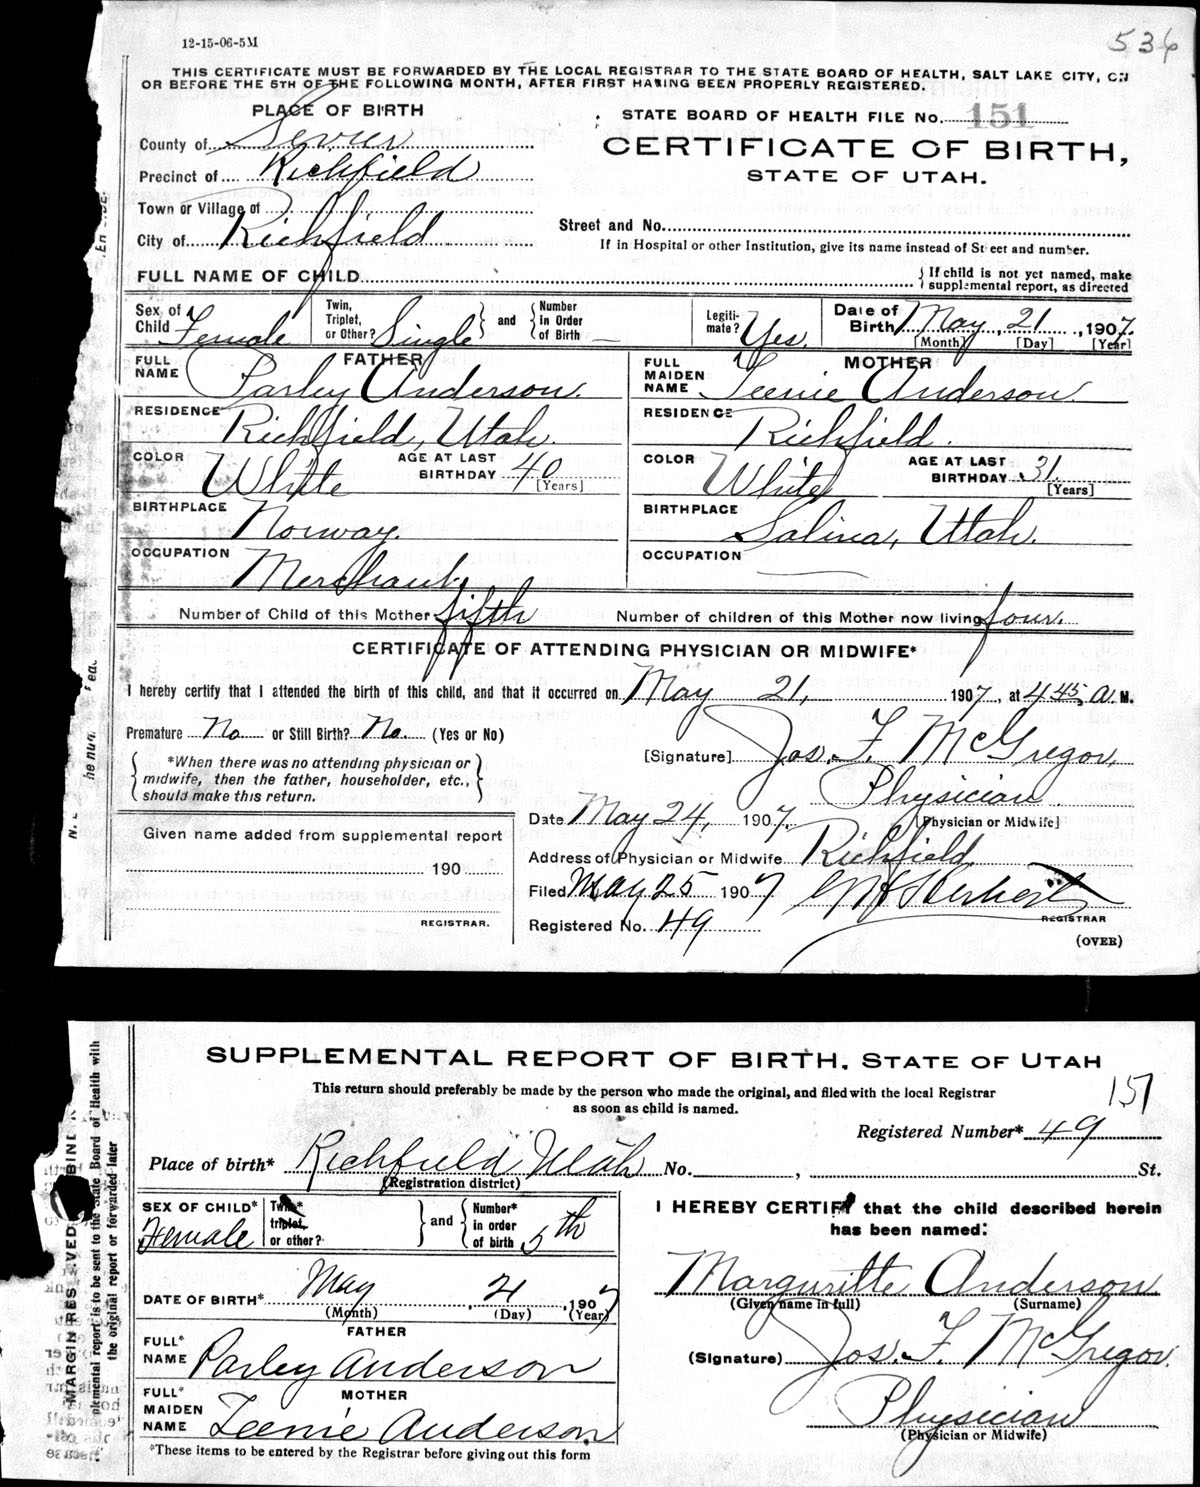 12-15-06-5M
536
THIS CERTIFICATE MUST BE FORWARDED BY THE LOCAL REGISTRAR TO THE STATE BOARD OF HEALTH, SALT LAKE CITY, ON
OR BEFORE THE 5TH OF THE FOLLOWING MONTH, AFTER FIRST HAVING BEEN PROPERLY REGISTERED.
PLACE OF BIRTH
STATE BOARD OF HEALTH FILE No. 151
County of Sevier
CERTIFICATE OF BIRTH,
Precinct of Richfield
STATE OF UTAH.
Town or Village of
Street and No.
City of Richfield
If in Hospital or other Institution, give its name instead of Street and number.
FULL NAME OF CHILD
If child is not yet named, make
supplemental report, as directed
Sex of Child Female
Twin, Triplet, or Other? Single and Number in Order of Birth —
Legiti-mate? Yes.
Date of Birth May 21, 1907.
[Month] [Day] [Year]
FATHER
FULL NAME Parley Anderson.
MOTHER
FULL MAIDEN NAME Teenie Anderson
RESIDENCE Richfield, Utah.
RESIDENCE Richfield.
COLOR White AGE AT LAST BIRTHDAY 40 [Years]
COLOR White AGE AT LAST BIRTHDAY 31. [Years]
BIRTHPLACE Norway.
BIRTHPLACE Salina, Utah.
OCCUPATION Merchant.
OCCUPATION
Number of Child of this Mother fifth Number of children of this Mother now living four.
CERTIFICATE OF ATTENDING PHYSICIAN OR MIDWIFE*
I hereby certify that I attended the birth of this child, and that it occurred on May 21, 1907, at 4 45, a. M.
Premature No. or Still Birth? No. (Yes or No)
[Signature] Jos. F. McGregor,
*When there was no attending physician or
midwife, then the father, householder, etc.,
should make this return.
Physician.
[Physician or Midwife]
Date May 24, 1907.
Given name added from supplemental report
Address of Physician or Midwife Richfield.
190
Filed May 25 1907
REGISTRAR
REGISTRAR.
Registered No. 49
(OVER)
SUPPLEMENTAL REPORT OF BIRTH, STATE OF UTAH
This return should preferably be made by the person who made the original, and filed with the local Registrar
as soon as child is named.
151
Registered Number* 49
Place of birth* Richfield Utah No. , St.
(Registration district)
SEX OF CHILD* Female
Twin* triplet, or other? and Number* in order of birth 5th
I HEREBY CERTIFY that the child described herein
has been named:
DATE OF BIRTH* May, 21, 1907
(Month) (Day) (Year)
Marguritte Anderson
(Given name in full) (Surname)
FATHER
FULL* NAME Parley Anderson
(Signature) Jos. F. McGregor.
MOTHER
FULL* MAIDEN NAME Teenie Anderson
Physician
(Physician or Midwife)
*These items to be entered by the Registrar before giving out this form
plemental report is to be sent to the State Board of Health with
the original report or forwarded later